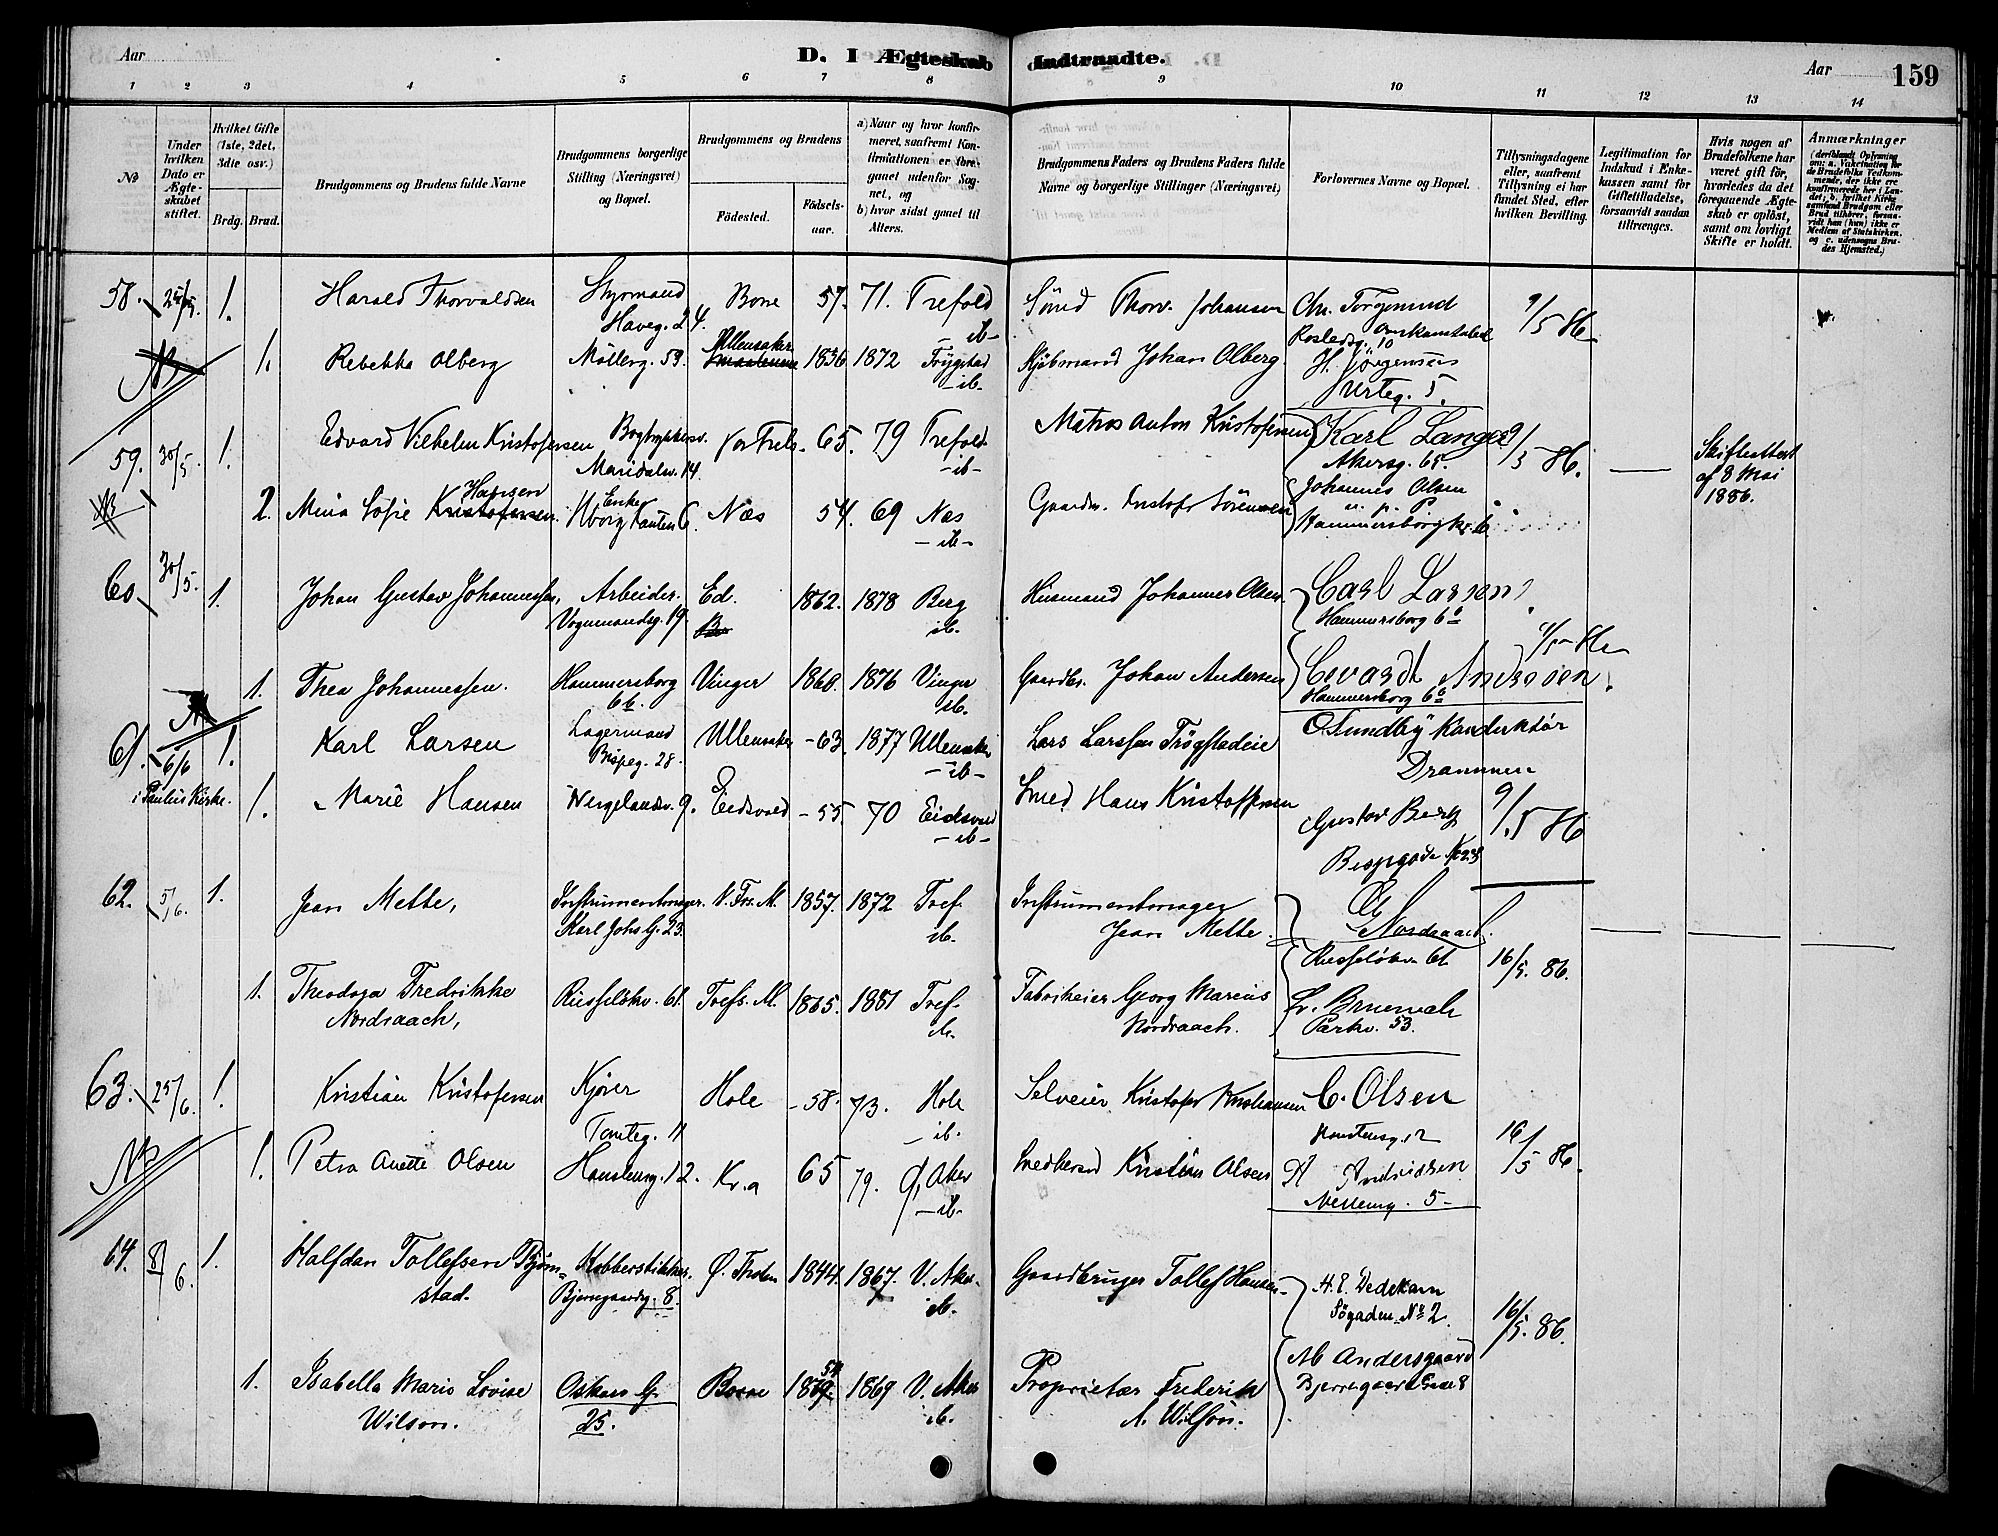 Aar
D. I Ægteskab Indtraadte.
Aar 159
1 2 3 4 5 6 7 8 9 10 11 12 13 14
No
Under hvilken Dato er Ægteskabet stiftet.
Hvilket Gifte (1ste, 2det, 3die osv.)
Brdg. Brud.
Brudgommens og Brudens fulde Navne
Brudgommens borgerlige Stilling (Næringsvei) og Bopæl.
Brudgommens og Brudens
Födested. Födselsaar.
a) Naar og hvor konfirmeret, saafremt Konfirmationen er foregaaet udenfor Sognet, og
b) hvor sidst gaaet til Alters.
Brudgommens Faders og Brudens Faders fulde Navne og borgerlige Stillinger (Næringsvei)
Forlovernes Navne og Bopæl.
Tillysningsdagene eller, saafremt Tillysning ei har fundet Sted, efter hvilken Bevilling.
Legitimation for Indskud i Enkekassen samt for Giftetilladelse, forsaavidt saadan tiltrænges.
Hvis nogen af Brudefolkene har været gift før, hvorledes da det foregaaende Ægteskab er oplöst, samt om lovligt Skifte er holdt.
Anmærkninger
58. 25/5. 1. Harald Thorvaldsen Styrmand Haveg. 24. Borre 57. 71. Trefold -ib-
Thorv. Johansen 9/5 86
1. Rebekka Olberg Möllerg. 53. Ullensaker 1836 1872 Trygstad -ib-
Kjöbmand Johan Olberg H. Jörgensen Urteg. 5.
59. 30/5. 1. Edvard Vilhelm Kristofersen Maridalsv. 14. Vor Frels. 65. 79 Trefold. -ib-
Matros Anton Kristofersen Karl Lange Akersg. 65. 9/5 86. Skifteattest af 8 Mai 1886.
2. Mina Sofie Kristofersen Hansen Enke Hborg Kanten 6. Næs 54. 69 Næs -ib-
Gaardm. Kristofer Sörensen Johannes Olsen Hammersborgkr. 6.
60. 30/5. 1. Johan Gustav Johannessen, Arbeider. Vognmandsg. 19. Ed. 1862. 1878 Berg ib.
Husmand Johannes Olsen. Carl Larsen Hammersborg 6b
1. Thea Johannessen. Hammersborg 6b. Vinger 1860. 1876 Vinger ib.
Gaardbr. Johan Andersen Andersen. Hammersborg 6b
61. 6/6 i Paulus Kirke. 1. Karl Larsen Lagermand Bispeg. 28. Ullensaker -63. 1877 Ullensaker -ib-
Lars Larssen Trögstadeie O Sundby Konduktör Drammen
1. Marie Hansen Wergelandsv. 9. Eidsvold -55. 70 Eidsvold -ib-
Smed Hans Kristoffersen Gustav Berg Bispgade No 28 9/5 86
62. 5/6. 1. Jean Mette, Instrumentmager. Karl Johs G. 23. V. Frs. M. 1857. 1872 Tref. ib.
Instrumentmager Jean Mette. Nordraach. Russelökv. 61
1. Theodora Fredrikke Nordraach, Russelökv. 61. Trefs. M. 1865. 1881 Tref. ib.
Fabrikeier Georg Marcus Nordraach. Parkv. 53. 16/5. 86.
63. 25/6. 1. Kristian Kristofersen Kjörer Tomteg. 11 Hole -58. 73. Hole -ib-
Selveier Kristofer Kristiansen C. Olsen
1. Petra Anette Olsen 12. Kr.a 65 79. Aker -ib-
Kristian Olsen 5- 16/5 86.
64. 8/6. 1. Halfdan Tollefsen Bjørnstad. Kobberstikker. Bjerregaardsg. 8. 1844. 1867. V. Aker. ib.
Gaardbruger Tollef Hansen H. E. Dedekam Søgaden No 2.
16/5. 86.
1. Isabella Marie Lovise Wilson. Oskars G. 25. 1869. 54 1869 V. Aker ib.
Proprietær Frederik A. Wilson. M Andersgaard Bjerregaards Gade 8